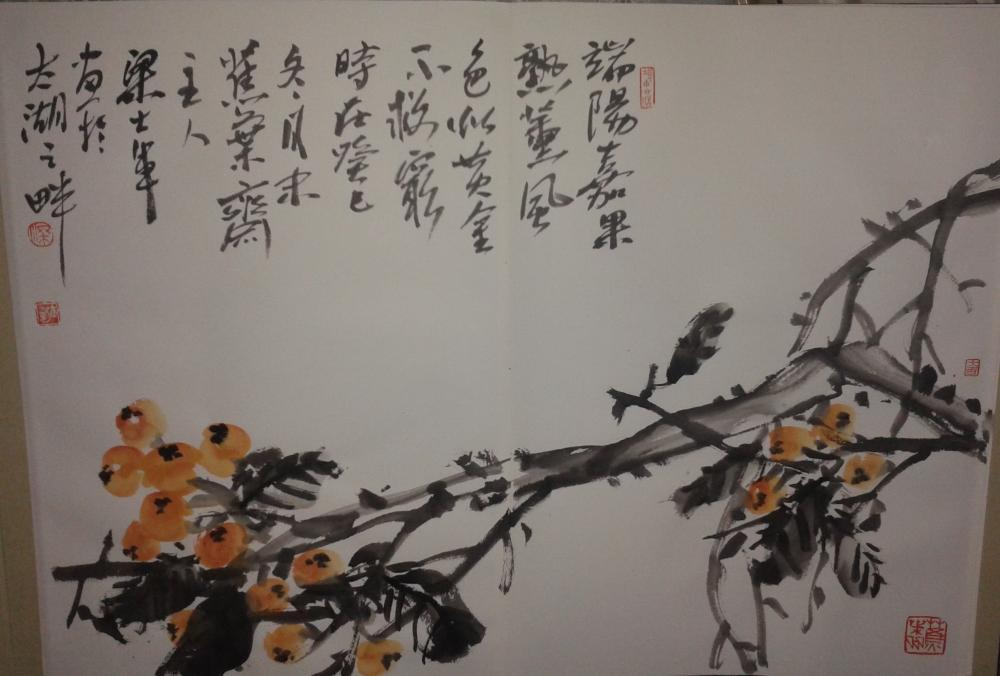 端陽嘉果
熟薰風
色似黄金
不救窮
時在癸巳
冬月末
蕉葉齋
主人
梁士軍
寫於
太湖之畔